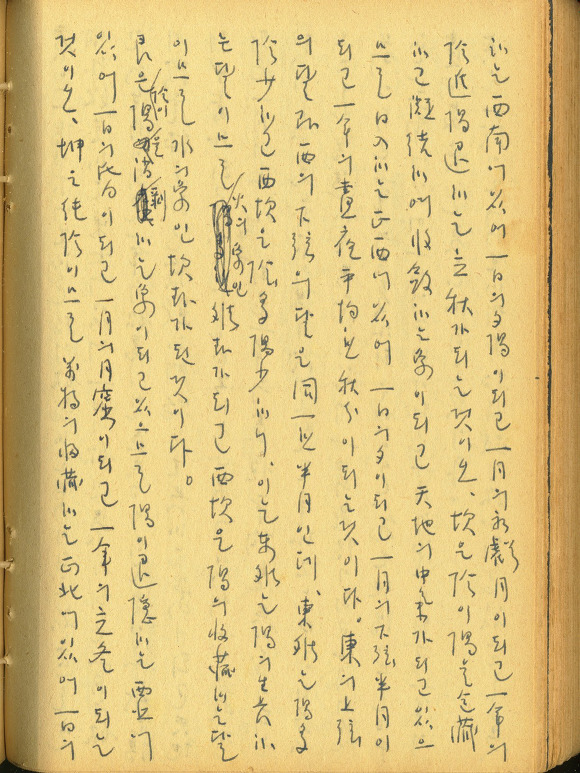 하는 西南에 있어 一日의 夕陽이 되고 一月의 初虧月이 되고 一年의
陰進陽退하는 立秋가 되는 것이오, 坎은 陰이 陽을 包藏
하고 凝結하여 收斂하는 象이 되고 天地의 中氣가 되고 있으
므로 日入하는 正西에 있어 一日의 夕이 되고 一月의 下弦半月이
되고 一年의 晝夜平均한 秋分이 되는 것이다. 東의 上弦
의 달과 西의 下弦의 달은 同一한 半月인데, 東離는 陽多
陰少하고 西坎은 陰多陽少하니, 이는 東離는 陽의 生長하
는 달이므로 火의 象인 離卦가 되고 西坎은 陽의 收藏하는 달
이므로 水의 象인 坎卦가 된 것이다.
艮은 陰이 陽을 消剝하는 象이 되고 있으므로 陽이 退隱하는 西北에
있어 一日의 昏이 되고 一月의 月窟이 되고 一年의 立冬이 되는
것이오, 坤은 純陰이므로 萬物의 收藏하는 正北에 있어 一日의